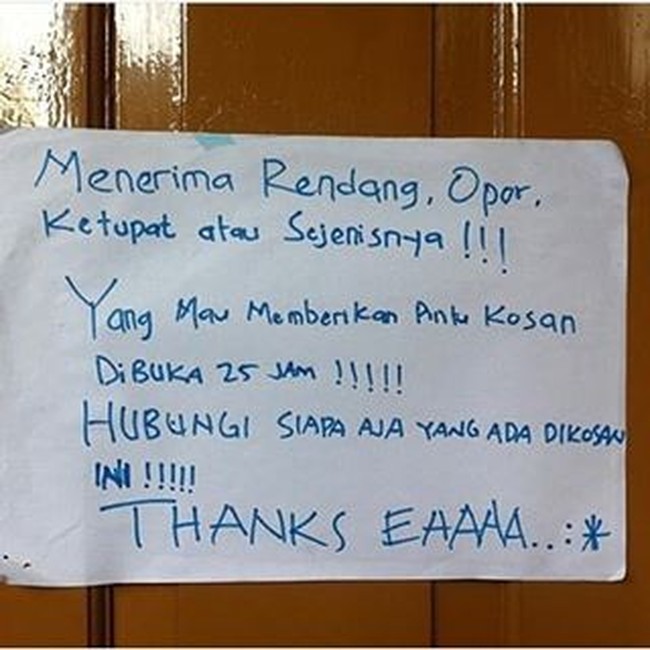 Menerima Rendang, Opor,
Ketupat atau Sejenisnya !!!
Yang Mau Memberikan Pintu Kosan
DiBUKA 25 JAM !!!!!
HUBUNGI SIAPA AJA YANG ADA DIKOSAN
INI !!!!!
THANKS EAAAA..:*